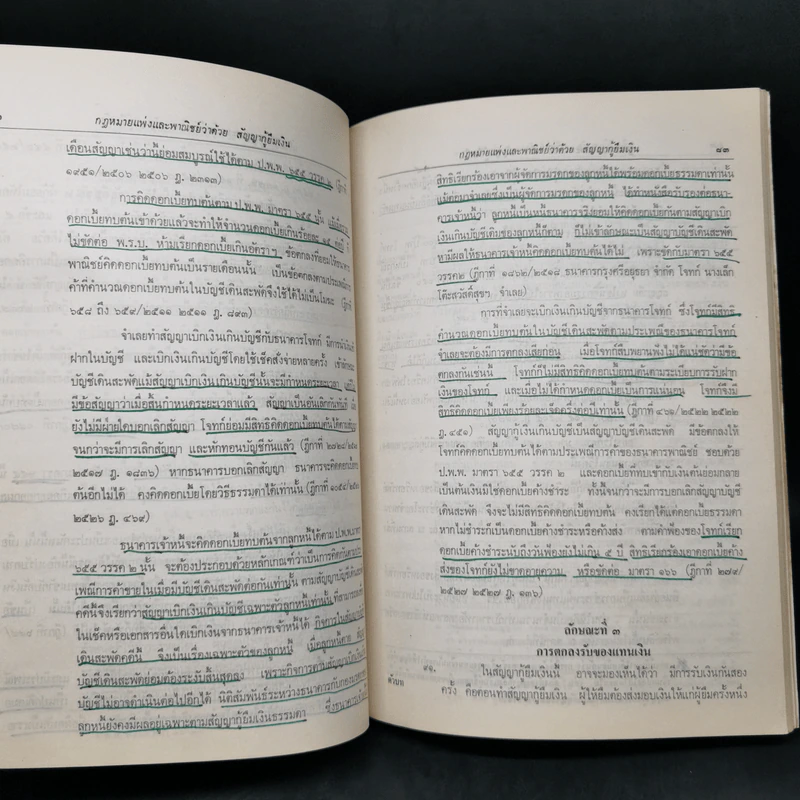 กฎหมายแพ่งและพาณิชย์ว่าด้วย สัญญากู้ยืมเงิน
เดือนสัญญาเช่นว่านี้ย่อมสมบูรณ์ใช้ได้ตาม ป.พ.พ. ๖๕๕ วรรค ๒
๑๙๕๑/๒๕๐๖ ๒๕๐๖ ฎ. ๒๓๑๓)
การคิดดอกเบี้ยทบต้นตาม ป.พ.พ. มาตรา ๖๕๕ นั้น
ดอกเบี้ยทบต้นเข้าด้วยแล้วจะทำให้จำนวนดอกเบี้ยเกินร้อยละ ๑๕
ไม่ขัดต่อ พ.ร.บ. ห้ามเรียกดอกเบี้ยเกินอัตรา ฯ ข้อตกลงที่ยอมให้ธนาคาร
พาณิชย์คิดดอกเบี้ยทบต้นเป็นรายเดือนนั้น เป็นข้อตกลงตามประเพณีการ
ค้าที่คำนวณดอกเบี้ยทบต้นในบัญชีเดินสะพัดจึงใช้ได้ไม่เป็นโมฆะ (ฎีกาที่
๖๕๘ ถึง ๖๕๙/๒๕๑๑ ๒๕๑๑ ฎ. ๘๙๓)
จำเลยทำสัญญาเบิกเงินเกินบัญชีกับธนาคารโจทก์ มีการนำเงินเข้า
ฝากในบัญชี และเบิกเงินเกินบัญชีโดยใช้เช็คสั่งจ่ายหลายครั้ง เข้าลักษณะ
บัญชีเดินสะพัดแม้สัญญาเบิกเงินเกินบัญชีนั้นจะมีกำหนดระยะเวลา
มีข้อสัญญาว่าเมื่อสิ้นกำหนดระยะเวลาแล้ว สัญญาเป็นอันเลิกกันทันที
ยังไม่มีฝ่ายใดบอกเลิกสัญญา โจทก์ย่อมมีสิทธิคิดดอกเบี้ยทบต้นได้ตามสัญญา
จนกว่าจะมีการเลิกสัญญา และหักทอนบัญชีกันแล้ว
๒๕๑๗ ฎ. ๑๘๓๖) หากธนาคารบอกเลิกสัญญา ธนาคารจะคิดดอกเบี้ย
ต้นอีกไม่ได้ คงคิดดอกเบี้ยโดยวิธีธรรมดาได้เท่านั้น
๒๕๒๖ ฎ. ๔๖๙)
ธนาคารเจ้าหนี้จะคิดดอกเบี้ยทบต้นจากลูกหนี้ได้ตาม ป.พ.พ. มาตรา
๖๕๕ วรรค ๒ นั้น จะต้องประกอบด้วยหลักเกณฑ์ว่าเป็นการคิดกันตามประ
เพณีการค้าขายในเมื่อมีบัญชีเดินสะพัดต่อกันเท่านั้น ตามสัญญาบัญชีเดินสะพัด
คดีนี้จึงเรียกว่าสัญญาเบิกเงินเกินบัญชีเฉพาะตัวลูกหนี้เท่านั้น ที่สามารถ
ในเช็คหรือเอกสารอื่นใดเบิกเงินจากธนาคารเจ้าหนี้ได้ กิจการในสัญญา
เดินสะพัดคดีนี้ จึงเป็นเรื่องเฉพาะตัวของลูกหนี้ เมื่อลูกหนี้ตาย
เดินสะพัดย่อมต้องระงับสิ้นสุดลง เพราะกิจการตามสัญญาเบิกเงินเกิน
บัญชีไม่อาจดำเนินต่อไปอีกได้ นิติสัมพันธ์ระหว่างธนาคารกับกองมรดก
ลูกหนี้ยังคงมีผลอยู่เฉพาะตามสัญญากู้ยืมเงินธรรมดา ซึ่งธนาคาร
กฎหมายแพ่งและพาณิชย์ว่าด้วย สัญญากู้ยืมเงิน ๘๓
สิทธิเรียกร้องเอาจากผู้จัดการมรดกของลูกหนี้ได้พร้อมดอกเบี้ยธรรมดาเท่านั้น
แม้ต่อมาจำเลยซึ่งเป็นผู้จัดการมรดกของลูกหนี้ ได้ทำหนังสือรับรองต่อธนา-
คารเจ้าหนี้ว่า ลูกหนี้เป็นหนี้ธนาคารจริงยอมให้คิดดอกเบี้ยกันตามสัญญาเบิก
เงินเกินบัญชีเดิมของลูกหนี้ก็ตาม ก็ไม่เข้าลักษณะเป็นสัญญาบัญชีเดินสะพัด
หามีผลให้ธนาคารเจ้าหนี้คิดดอกเบี้ยทบต้นได้ไม่ เพราะขัดกับมาตรา ๖๕๕
วรรค ๒ (ฎีกาที่ ๑๘๖๒/๒๕๑๘ ธนาคารกรุงศรีอยุธยา จำกัด โจทก์ นางเล็ก
โต๊ะสวัสดิ์สุขฯ จำเลย)
การที่จำเลยจะเบิกเงินเกินบัญชีจากธนาคารโจทก์ ซึ่งโจทก์มีสิทธิ
คำนวณดอกเบี้ยทบต้นในบัญชีเดินสะพัดตามประเพณีของธนาคารโจทก์
จำเลยจะต้องมีการตกลงเสียก่อน เมื่อโจทก์สืบพยานฟังไม่ได้แน่ชัดว่ามีข้อ
ตกลงกันเช่นนี้ โจทก์ก็ไม่มีสิทธิคิดดอกเบี้ยทบต้นตามระเบียบการรับฝาก
เงินของโจทก์ และเมื่อไม่ได้กำหนดดอกเบี้ยเป็นการแน่นอน โจทก์จึงมี
สิทธิคิดดอกเบี้ยเพียงร้อยละเจ็ดครึ่งต่อปีเท่านั้น (ฎีกาที่ ๔๖๑/๒๕๒๒ ๒๕๒๒
ฎ. ๔๕๑) สัญญากู้เงินเกินบัญชีเป็นสัญญาบัญชีเดินสะพัด มีข้อตกลงให้
โจทก์คิดดอกเบี้ยทบต้นได้ตามประเพณีการค้าของธนาคารพาณิชย์ ชอบด้วย
ป.พ.พ. มาตรา ๖๕๕ วรรค ๒ และดอกเบี้ยที่ทบเข้ากับเงินต้นย่อมกลาย
เป็นต้นเงินมิใช่ดอกเบี้ยค้างชำระ ทั้งนี้จนกว่าจะมีการบอกเลิกสัญญาบัญชี
เดินสะพัด จึงจะไม่มีสิทธิคิดดอกเบี้ยทบต้น คงเรียกได้แต่ดอกเบี้ยธรรมดา
หากไม่ชำระก็เป็นดอกเบี้ยค้างชำระหรือค้างส่ง ตามคำฟ้องของโจทก์เรียก
ดอกเบี้ยค้างชำระนับถึงวันฟ้องยังไม่เกิน ๕ ปี สิทธิเรียกร้องเอาดอกเบี้ยค้าง
ส่งของโจทก์ยังไม่ขาดอายุความ หรือขัดต่อ มาตรา ๑๖๖ (ฎีกาที่ ๒๗๙/
๒๕๒๗ ๒๕๒๗ ฎ. ๑๓๖)
ลักษณะที่ ๓
การตกลงรับของแทนเงิน
๙๑. ในสัญญากู้ยืมเงินนี้ อาจจะมองเห็นได้ว่า มีการรับเงินกันสอง
คำบท ครั้ง คือตอนทำสัญญา ผู้ให้ยืมต้องส่งมอบเงินให้แก่ผู้ยืมครั้งหนึ่ง